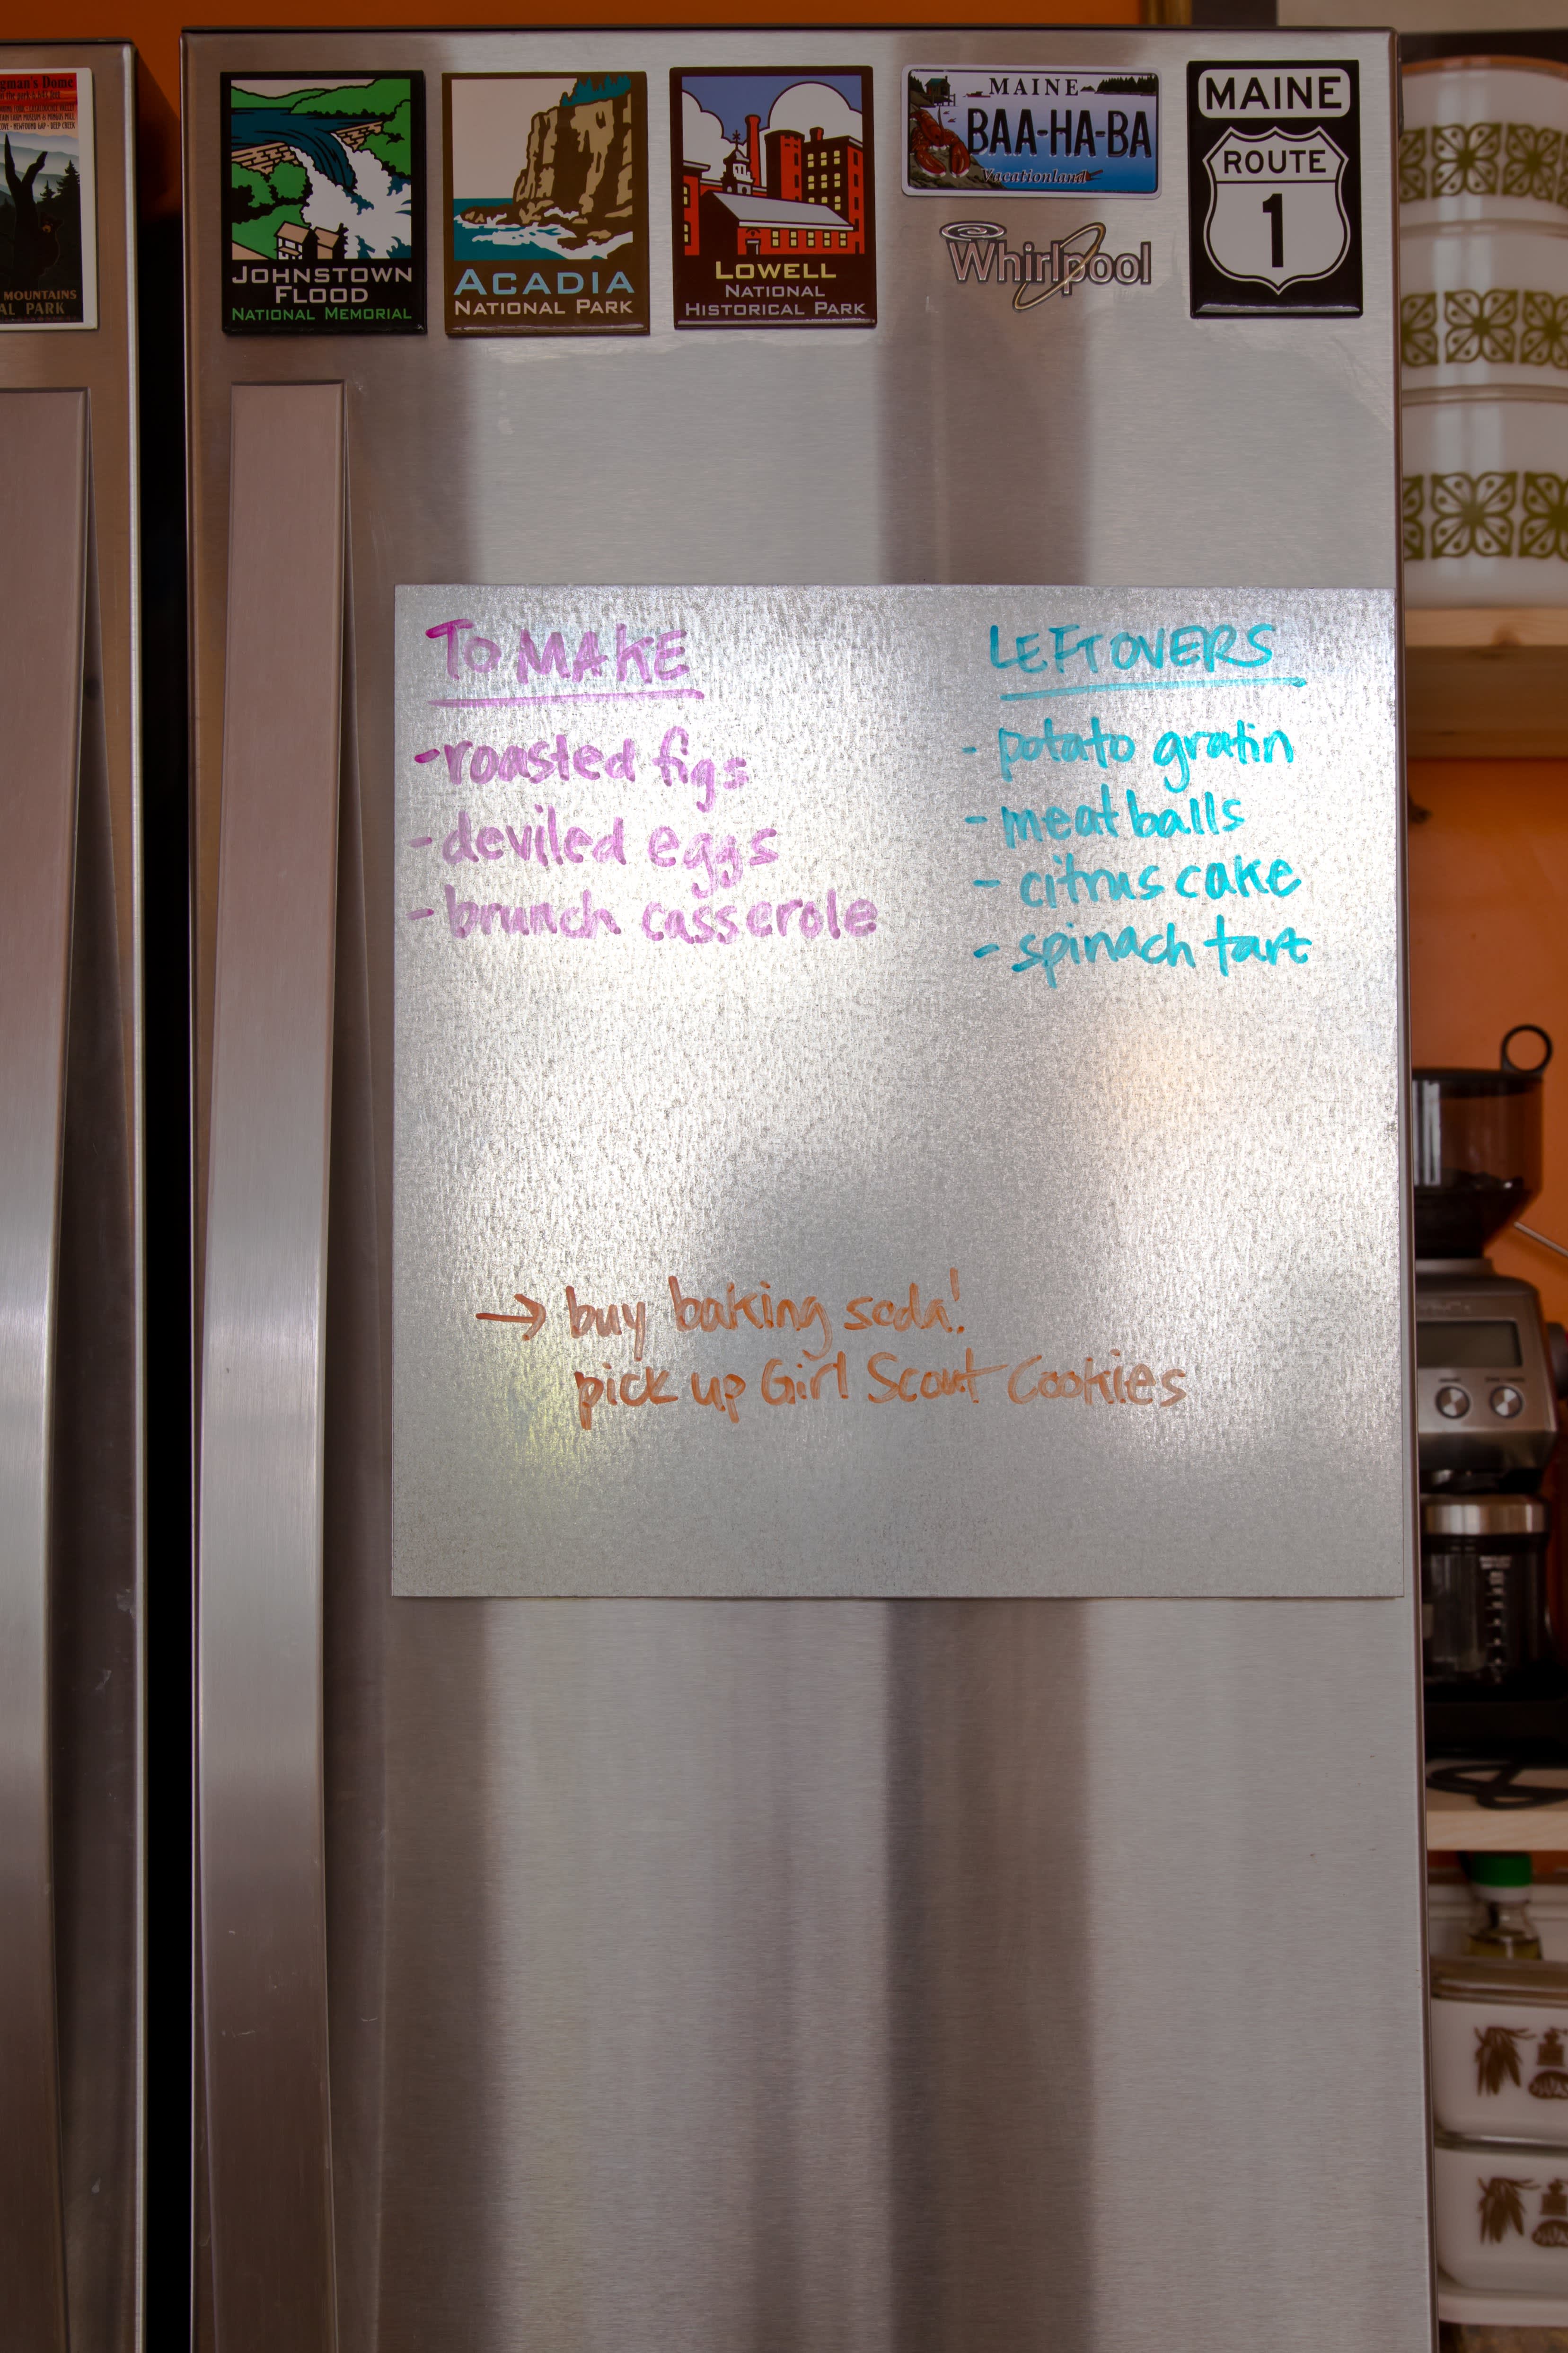 gman's Dome
MOUNTAINS
AL PARK
JOHNSTOWN
FLOOD
NATIONAL MEMORIAL
ACADIA
NATIONAL PARK
LOWELL
NATIONAL
HISTORICAL PARK
MAINE
BAA-HA-BA
Vacationland
Whirlpool
MAINE
ROUTE
1
TO MAKE
-roasted figs
-deviled eggs
-brunch casserole
LEFTOVERS
- potato gratin
- meatballs
- citrus cake
- spinach tart
→ buy baking soda!
pick up Girl Scout Cookies